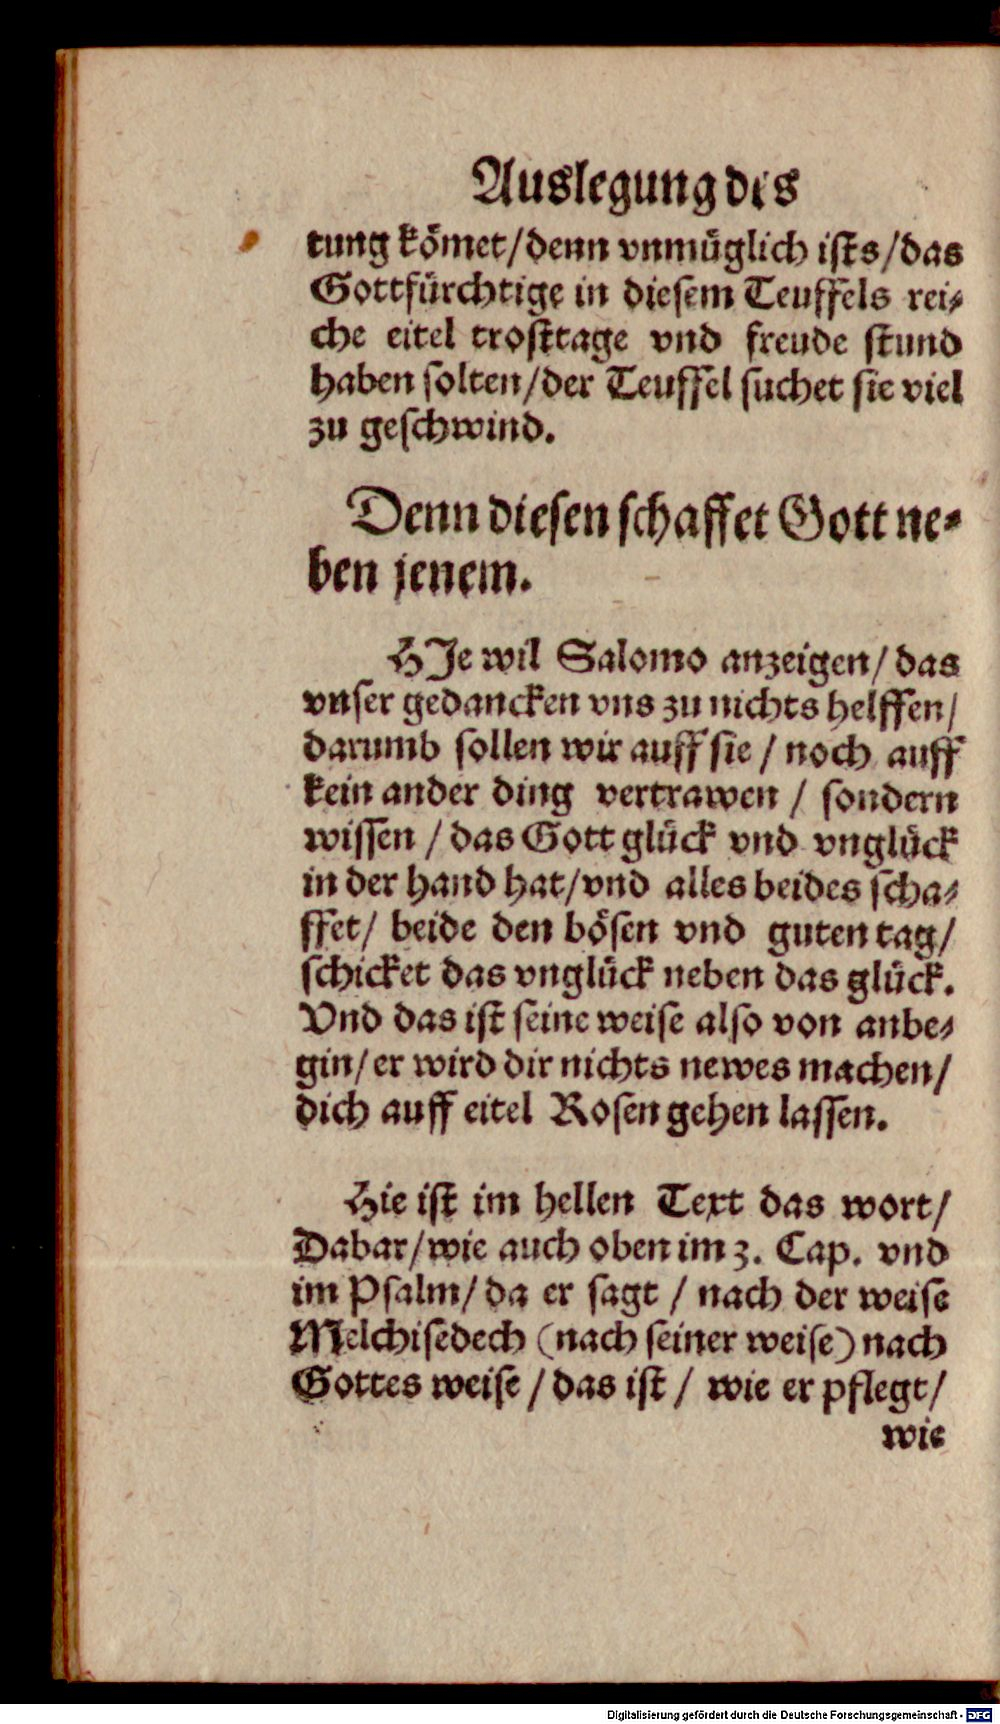 Auslegung des
tung kömet/denn vnmüglich ists/das
Gottfürchtige in diesem Teuffels rei⸗
che eitel trosttage vnd freude stund
haben solten/der Teuffel suchet sie viel
zu geschwind.
Denn diesen schaffet Gott ne⸗
ben jenem.
HJe wil Salomo anzeigen/das
vnser gedancken vns zu nichts helffen/
darumb sollen wir auff sie / noch auff
kein ander ding vertrawen / sondern
wissen / das Gott glück vnd vnglück
in der hand hat/vnd alles beides scha⸗
ffet/ beide den bösen vnd guten tag/
schicket das vnglück neben das glück.
Vnd das ist seine weise also von anbe⸗
gin/er wird dir nichts newes machen/
dich auff eitel Rosen gehen lassen.
Hie ist im hellen Text das wort/
Dabar/wie auch oben im 3. Cap. vnd
im Psalm/da er sagt / nach der weise
Melchisedech (nach seiner weise) nach
Gottes weise / das ist / wie er pflegt/
wie
Digitalisierung gefördert durch die Deutsche Forschungsgemeinschaft - DFG